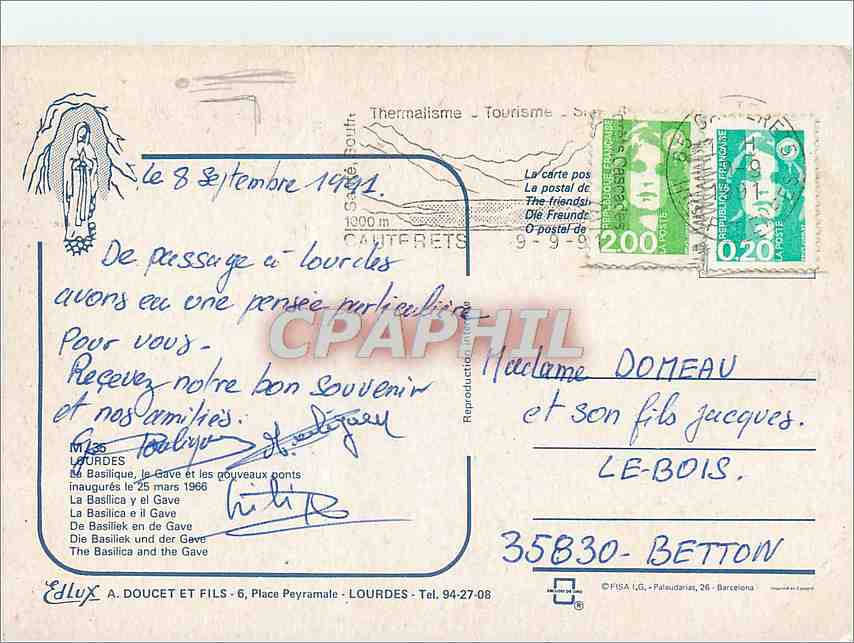 Thermalisme - Tourisme -
1000 m
CAUTERETS 9-9-91
La carte pos
La postal de
The friendsh
Die Freunds
O postal de
REPUBLIQUE FRANÇAISE
2,00
LA POSTE
REPUBLIQUE FRANÇAISE
0,20
LA POSTE
le 8 septembre 1991.
De passage à lourdes
avons eu une pensée particulière
Pour vous.
Recevez notre bon souvenir
et nos amitiés.
CPAPHIL
Reproduction interdite
Madame DOMEAU
et son fils Jacques.
LE-BOIS.
35830- BETTON
M/35
LOURDES
La Basilique, le Gave et les nouveaux ponts
inaugurés le 25 mars 1966
La Basílica y el Gave
La Basilica e il Gave
De Basiliek en de Gave
Die Basiliek und der Gave
The Basilica and the Gave
EDLUX A. DOUCET ET FILS - 6, Place Peyramale - LOURDES - Tel. 94-27-08
© FISA I.G. - Palaudarias, 26 - Barcelona